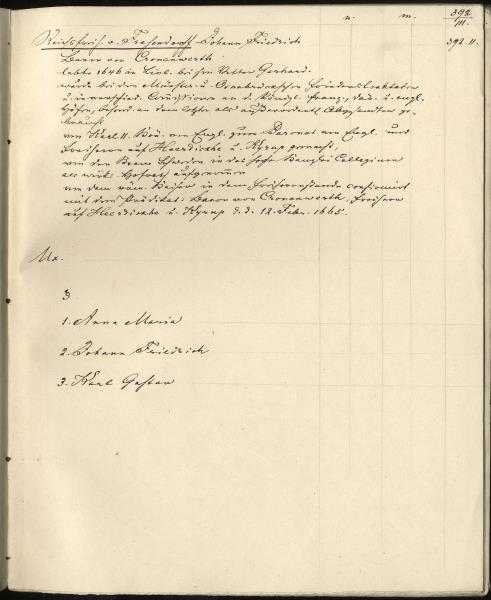 n. m. 392/III.
Reichsfreih. v. Friesendorff Johann Friedrich 392.II.
Baron von Cronenwerth
lebte 1646 in Livl. bei sein Vetter Gerhard.
wurde bei den Münster u. Osnabrückschen Friedenstraktaten
u. in verschied. Comissionen an d. Königl. franz., dän. u. engl.
Höfen, besond. an dem letzten als außerordentl. Abgesandten ge-
braucht
von Karl II. Kön. von Engl. zum Baronet von Engl. und
Freiherrn auf Heerdicke u. Kyrup gemacht,
von den Kron Schweden in das Hof Kanzlei Collegium
als wirkl. Hofrath aufgenommen
von dem röm. Kaiser in dem Freiherrnstande confirmirt
mit dem Prädikat: Baron von Cronenwerth, Freiherr
auf Heerdicke u. Kyrup d. d. 12. Febr. 1665.
Ux.
3
1. Anna Maria
2. Johann Friedrich
3. Karl Gustav